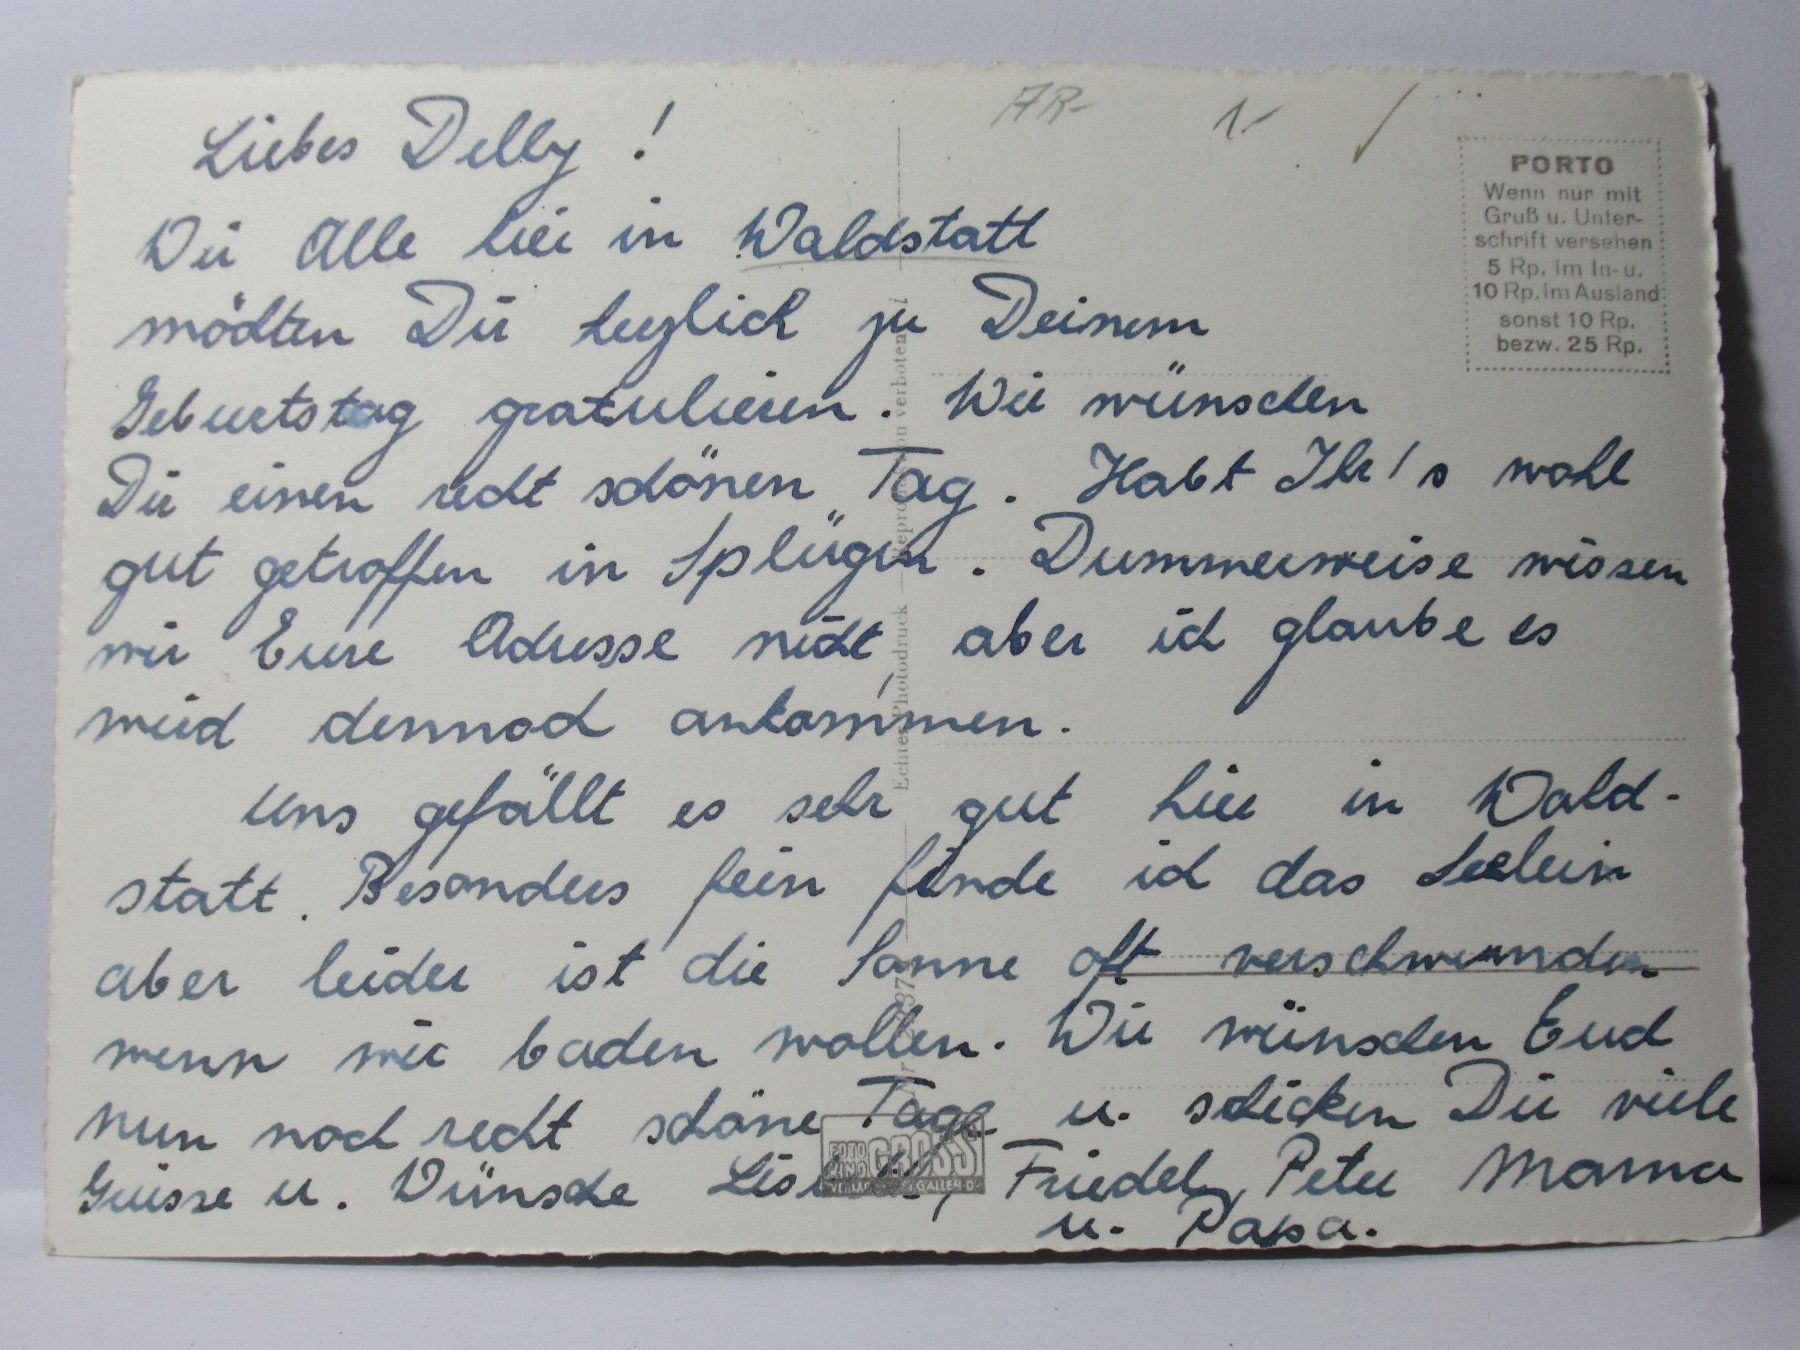 AR-
1.-
Liebes Delly!
Wir Alle hier in Waldstatt
möchten Dir herzlich zu Deinem
Geburtstag gratulieren. Wir wünschen
Dir einen recht schönen Tag. Habt Ihr's wohl
gut getroffen in Splügen. Dummerweise wissen
wir Eure Adresse nicht, aber ich glaube es
wird dennoch ankommen.
Uns gefällt es sehr gut hier in Wald-
statt. Besonders fein finde ich das Seelein
aber leider ist die Sonne oft verschwunden
wenn wir baden wollen. Wir wünschen Euch
nun noch recht schöne Tage u. schicken Dir viele
Grüsse u. Wünsche Friedel, Peter Mama
u. Papa.
PORTO
Wenn nur mit
Gruß u. Unter-
schrift versehen
5 Rp. im In- u.
10 Rp. im Ausland
sonst 10 Rp.
bezw. 25 Rp.
Echter Photodruck — Reproduktion verboten!
FOTO
KINO GROSS
GALLEN